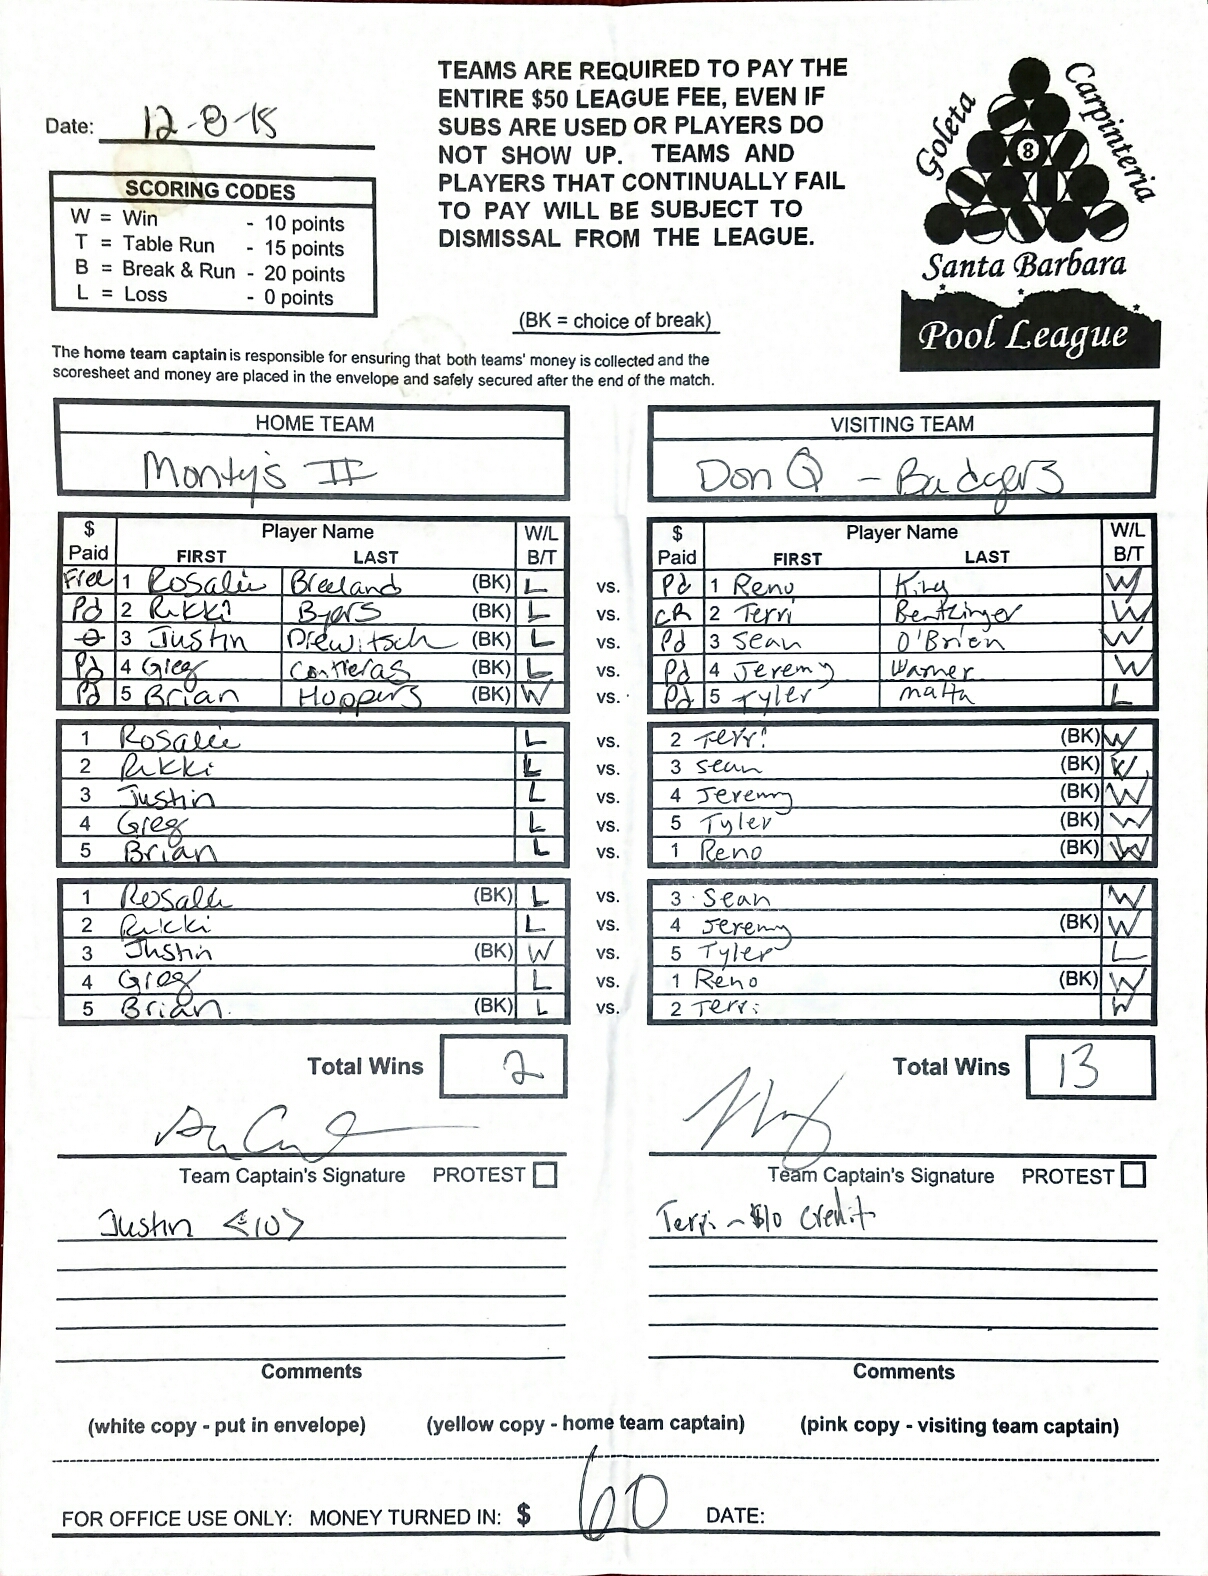 Date: 12-8-15
TEAMS ARE REQUIRED TO PAY THE
ENTIRE $50 LEAGUE FEE, EVEN IF
SUBS ARE USED OR PLAYERS DO
NOT SHOW UP. TEAMS AND
PLAYERS THAT CONTINUALLY FAIL
TO PAY WILL BE SUBJECT TO
DISMISSAL FROM THE LEAGUE.
Goleta
Carpinteria
8
Santa Barbara
Pool League
SCORING CODES
W = Win - 10 points
T = Table Run - 15 points
B = Break & Run - 20 points
L = Loss - 0 points
(BK = choice of break)
The home team captain is responsible for ensuring that both teams' money is collected and the
scoresheet and money are placed in the envelope and safely secured after the end of the match.
HOME TEAM VISITING TEAM
Monty's II Don Q - Badgers
$ Player Name W/L $ Player Name W/L
Paid FIRST LAST B/T Paid FIRST LAST B/T
Free 1 Rosalie Breeland (BK) L vs. Pd 1 Reno King W
Pd 2 Rikki Byers (BK) L vs. CR 2 Terri Bentzinger W
0 3 Justin Drewitsch (BK) L vs. Pd 3 Sean O'Brien W
Pd 4 Greg Contreras (BK) L vs. Pd 4 Jeremy Warner W
Pd 5 Brian Hoppers (BK) W vs. Pd 5 Tyler Matta L
1 Rosalie L vs. 2 Terri (BK) W
2 Rikki L vs. 3 Sean (BK) W
3 Justin L vs. 4 Jeremy (BK) W
4 Greg L vs. 5 Tyler (BK) W
5 Brian L vs. 1 Reno (BK) W
1 Rosalie (BK) L vs. 3 Sean W
2 Rikki L vs. 4 Jeremy (BK) W
3 Justin (BK) W vs. 5 Tyler L
4 Greg L vs. 1 Reno (BK) W
5 Brian (BK) L vs. 2 Terri W
Total Wins 2 Total Wins 13
Team Captain's Signature PROTEST Team Captain's Signature PROTEST
Justin <10> Terri - $10 credit
Comments Comments
(white copy - put in envelope) (yellow copy - home team captain) (pink copy - visiting team captain)
FOR OFFICE USE ONLY: MONEY TURNED IN: $ 60 DATE: